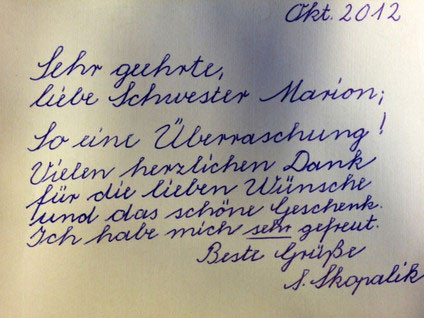 Okt. 2012
Sehr geehrte,
liebe Schwester Marion,
So eine Überraschung!
Vielen herzlichen Dank
für die lieben Wünsche
und das schöne Geschenk.
Ich habe mich sehr gefreut.
Beste Grüße
S. Skopalik